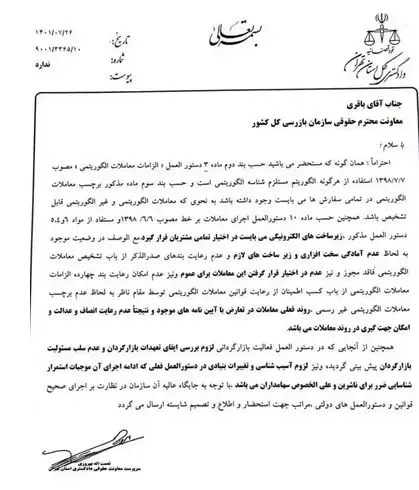 بسمه تعالی
تاریخ: ۱۴۰۱/۰۷/۲۶
شماره: ۹۰۰۱/۳۳۶۵/۱۰
پیوست: ندارد
قوه قضائیه
دادگستری کل استان تهران
جناب آقای باقری
معاونت محترم حقوقی سازمان بازرسی کل کشور
با سلام؛
احتراماً؛ همان گونه که مستحضر می باشید حسب بند دوم ماده ۳ دستور العمل « الزامات معاملات الگوریتمی » مصوب
۱۳۹۸/۷/۷ استفاده از هرگونه الگوریتم مستلزم شناسه الگوریتمی است و حسب بند سوم ماده مذکور برچسب معاملات
الگوریتمی در تمامی سفارش ها می بایست وجود داشته باشد به نحوی که معاملات الگوریتمی و غیر الگوریتمی قابل
تشخیص باشد. همچنین حسب ماده ۱۰ دستورالعمل اجرای معاملات بر خط مصوب ۱۳۹۸/۶/۶ و مستفاد از مواد ۴و۵و۶
دستور العمل مذکور، زیرساخت های الکترونیکی می بایست در اختیار تمامی مشتریان قرار گیرد، مع الوصف در وضعیت موجود
به لحاظ عدم آمادگی سخت افزاری و زیر ساخت های لازم و عدم رعایت بندهای صدرالذکر از باب تشخیص معاملات
الگوریتمی فاقد مجوز و نیز عدم در اختیار قرار گرفتن این معاملات برای عموم ونیز عدم امکان رعایت بند چهارده الزامات
معاملات الگوریتمی از باب کسب اطمینان از رعایت قوانین معاملات الگوریتمی توسط مقام ناظر به لحاظ عدم برچسب
معاملات الگوریتمی غیر رسمی ، روند فعلی معاملات در تعارض با آیین نامه های موجود و نتیجتاً عدم رعایت انصاف و عدالت و
امکان جهت گیری در روند معاملات می باشد.
همچنین از آنجایی که در دستور العمل فعالیت بازارگردانی لزوم بررسی ایفای تعهدات بازارگردان و عدم سلب مسئولیت
بازارگردان پیش بینی گردیده ونیز لزوم آسیب شناسی و تغییرات بنیادی در دستورالعمل فعلی که ادامه اجرای آن موجبات استمرار
شناسایی ضرر برای ناشرین و علی الخصوص سهامداران می باشد ،با توجه به جایگاه عالیه آن سازمان در نظارت بر اجرای صحیح
قوانین و دستورالعمل های دولتی ،مراتب جهت استحضار و اطلاع و تصمیم شایسته ارسال می گردد
نعمت اله بهروزی
سرپرست معاونت حقوقی دادگستری استان تهران